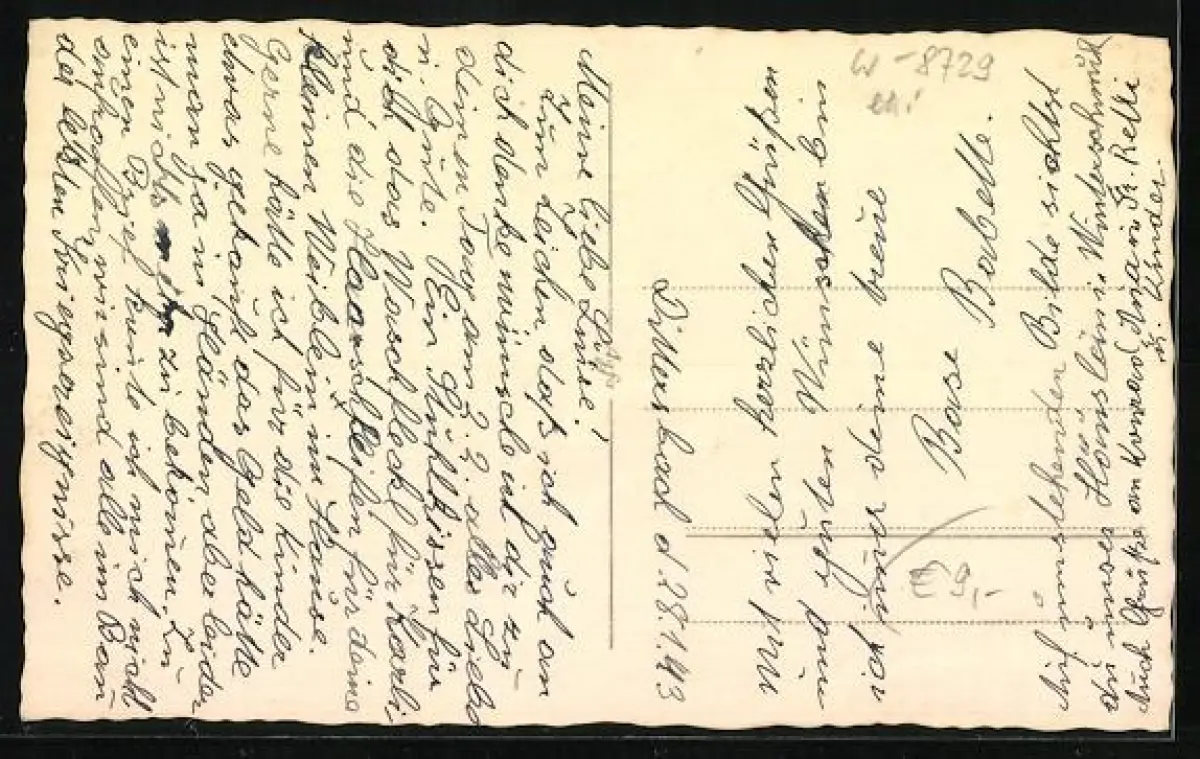 Meine liebe Luise!
Zum Zeichen daß ich auch an
dich denke wünsche ich dir zu
deinem Tag am 2.2. alles Liebe
u. Gute. Ein Nähkissen für
dich das Waschfleckl für Karli
und die Haarschleifen für deine
kleinen Weiblein im Hause.
Gerne hätte ich für die Kinder
etwas gekauft das Geld hätte
man ja in Händen aber leider
ist nichts zu bekom̅en. Zu
einen Brief konnte ich mich nicht
aufraffen wir sind alle im Bann
der letzten Kriegsereignisse.
Dittersbach d. 28.1.43
Mit vielen herzlichen Grüßen
und guten Wünschen bin
ich im̅er deine treue
Base
Auf umstehenden Bilde siehtst
du unser Häuslein i. Winterschmuck
Auch Grüße an Konrad
u. Kinder.
W-8729
€ 9,-